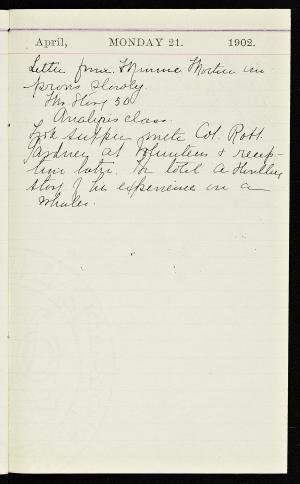 April, MONDAY 21. 1902.
Letter from Minnie Morten im-
proves slowly.
Mrs Story 50
Analysis class.
Took supper with Col. Robt.
Gardner at Volunteers & recep-
tion later. He told a thrilling
story of his experience on a
whaler.